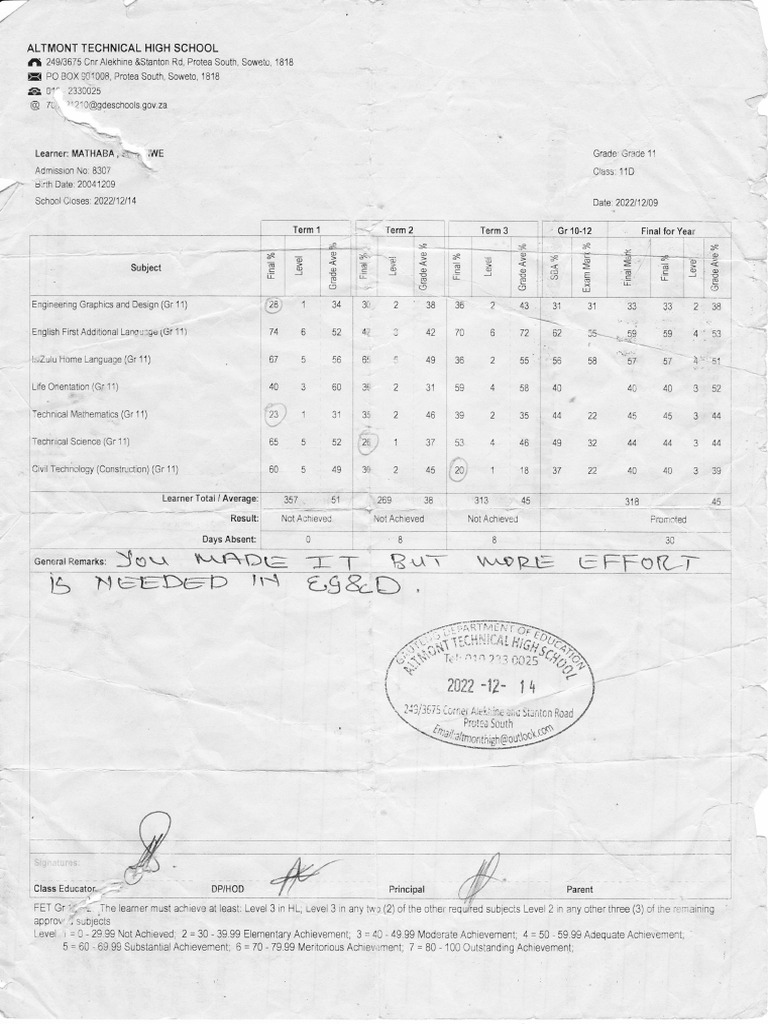 ALTMONT TECHNICAL HIGH SCHOOL
249/3675 Cnr Alekhine &Stanton Rd, Protea South, Soweto, 1818
PO BOX 901008, Protea South, Soweto, 1818
2330025
@gdeschools.gov.za
Learner: MATHABA ,
Grade: Grade 11
Admission No: 8307
Class: 11D
Birth Date: 20041209
School Closes: 2022/12/14
Date: 2022/12/09
Term 1 Term 2 Term 3 Gr 10-12 Final for Year
Subject Final % Level Grade Ave % Final % Level Grade Ave % Final % Level Grade Ave % SBA % Exam Mark % Final Mark Final % Level Grade Ave %
Engineering Graphics and Design (Gr 11) 28 1 34 30 2 38 36 2 43 31 31 33 33 2 38
English First Additional Language (Gr 11) 74 6 52 42 3 42 70 6 72 62 59 59 4 53
IsiZulu Home Language (Gr 11) 67 5 56 5 49 36 2 55 56 58 57 57 4 51
Life Orientation (Gr 11) 40 3 60 2 31 59 4 58 40 40 40 3 52
Technical Mathematics (Gr 11) 23 1 31 35 2 46 39 2 35 44 22 45 45 3 44
Technical Science (Gr 11) 65 5 52 26 1 37 53 4 46 49 32 44 44 3 44
Civil Technology (Construction) (Gr 11) 60 5 49 2 45 20 1 18 37 22 40 40 3 39
Learner Total / Average: 357 51 269 38 313 45 318 45
Result: Not Achieved Not Achieved Not Achieved Promoted
Days Absent: 0 8 8 30
General Remarks: YOU MADE IT BUT MORE EFFORT
IS NEEDED IN EG&D.
GAUTENG DEPARTMENT OF EDUCATION
ALTMONT TECHNICAL HIGH SCHOOL
Tel: 010 233 0025
2022 -12- 14
249/3675 Corner Alekhine and Stanton Road
Protea South
Email:altmonthigh@outlook.com
Signatures:
Class Educator DP/HOD Principal Parent
FET Gr The learner must achieve at least: Level 3 in HL, Level 3 in any two (2) of the other required subjects Level 2 in any other three (3) of the remaining
approved subjects
Level 1 = 0 - 29.99 Not Achieved; 2 = 30 - 39.99 Elementary Achievement; 3 = 40 - 49.99 Moderate Achievement; 4 = 50 - 59.99 Adequate Achievement;
5 = 60 - 69.99 Substantial Achievement; 6 = 70 - 79.99 Meritorious Achievement; 7 = 80 - 100 Outstanding Achievement;